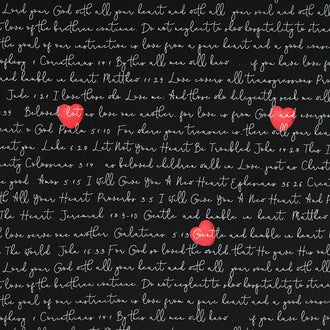 Lord your God with all your heart and with all your soul and with all
love of the brethren continue. Do not neglect to show hospitality to strang
the goal of our instruction is love from a pure heart and a good consci
1 Corinthians 14:1 By this all men will know if you have love f
and humble in heart Matthew 11:29 Love covers all transgressions Pro
Jude 1:21 I love those who Love me. And those who diligently seek me will
Beloved, let us love one another, for love is from God and every
God Psalm 51:10 For where your treasure is there will your heart
Luke 6:27 Let Not Your Heart Be Troubled John 14:27 This I
unity Colossians 3:14 as beloved children walk in Love, just as Christ
Amos 5:15 I Will Give You A New Heart Ephesians 36:26 Crea
th All Your Heart Proverbs 3:5 I Will Give You A New Heart And
The Heart. Jeremiah 17:9-10 Gentle and humble in heart Matthew
love serve one another. Galatians 5:13 Gentle and humble in heart
The World John 16:33 For God so loved the world, that He gave His only
Lord your God with all your heart and with all your soul and with all
love of the brethren continue. Do not neglect to show hospitality to strang
the goal of our instruction is love from a pure heart and a good consci
1 Corinthians 14:1 By this all men will know if you have lo